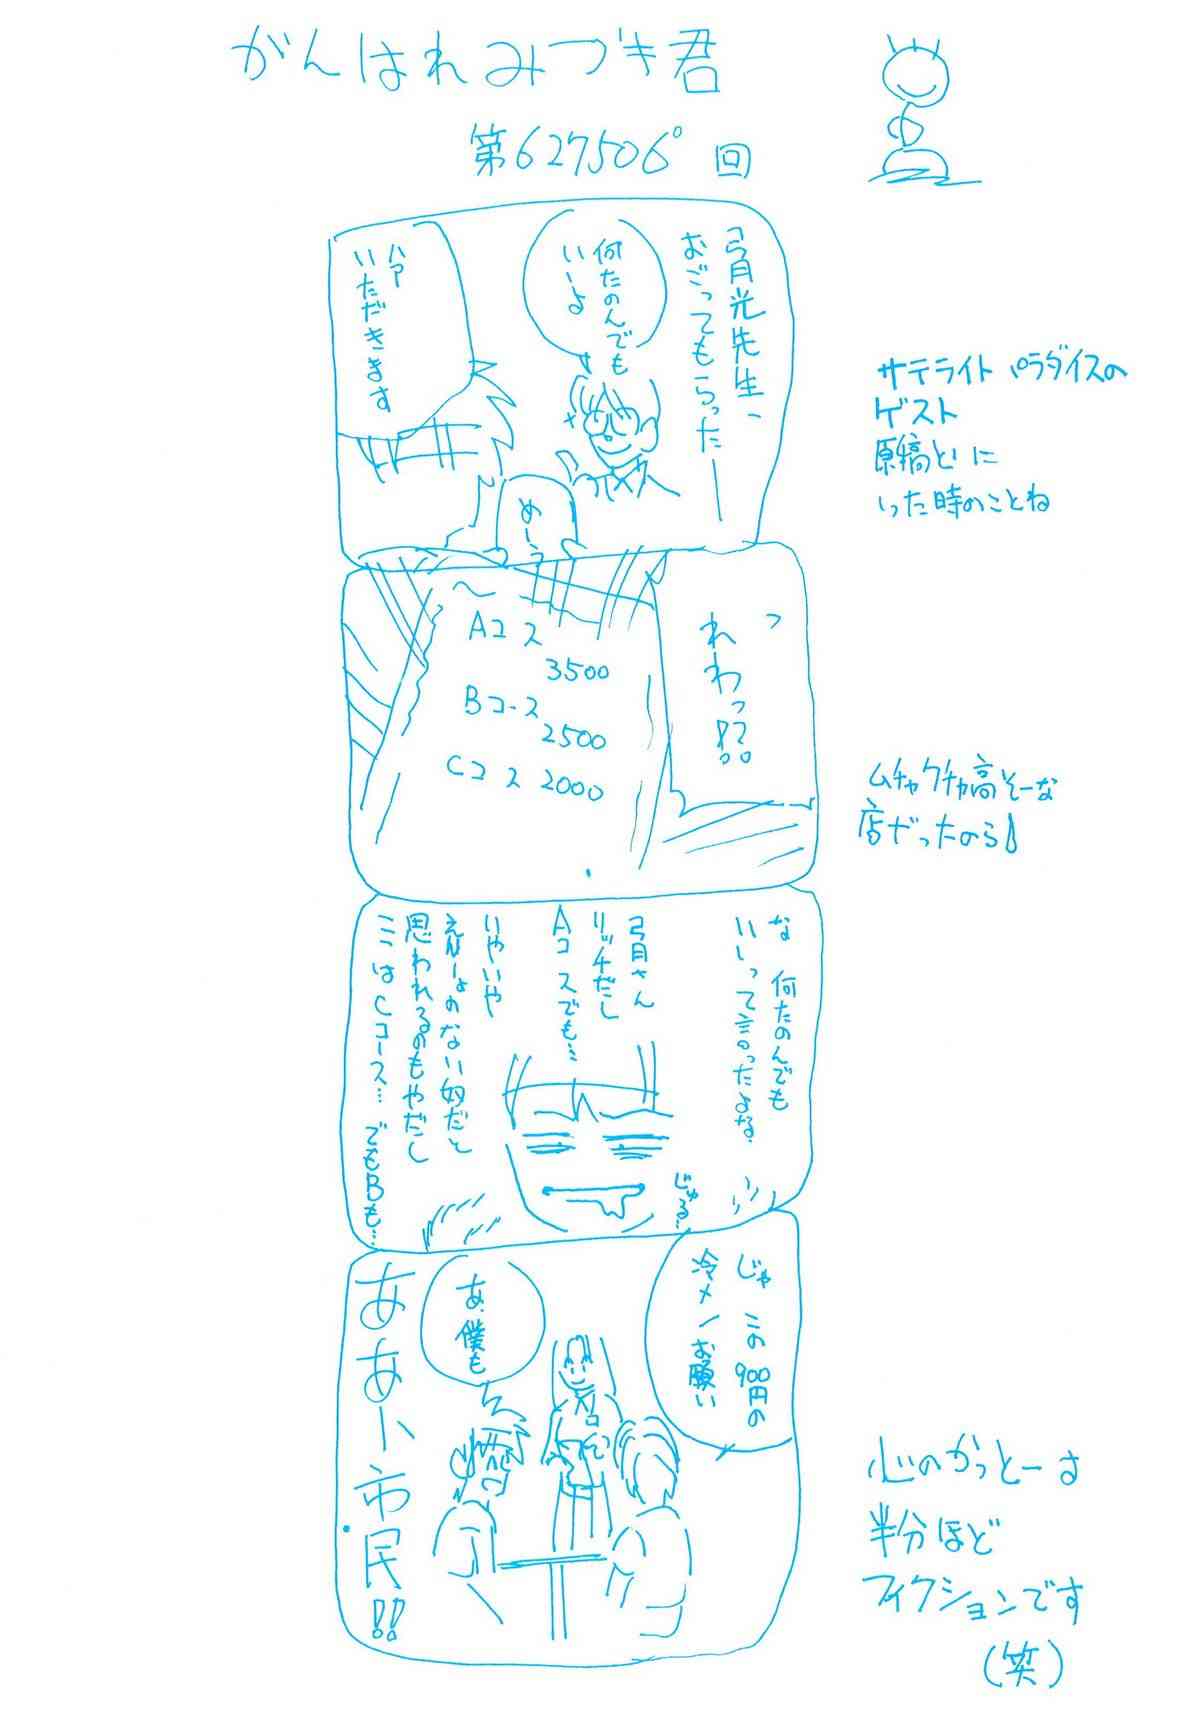 がんばれみづき君
第627506回
弓月光先生、
おごってもらったー
何たのんでも
いーよ
ハアー
いただきます
めーう
サテライトパラダイスの
ゲスト
原稿とに
いった時のことね
っ
れわっ!?
Aコス
3500
Bコース
2500
Cコス 2000
ムチャクチャ高そーな
店だったのら
な 何たのんでも
いいって言ったよな
弓月さん
リッチだし
Aコスでも…
いやいや
えんりょのない奴だと
思われるのもやだし
ここはCコース…でもBも…
じゅる…
じゃ この900円の
冷メンお願い
あ、僕も
ああ小市民!!
心のかっとーは
半分ほど
フィクションです
(笑)